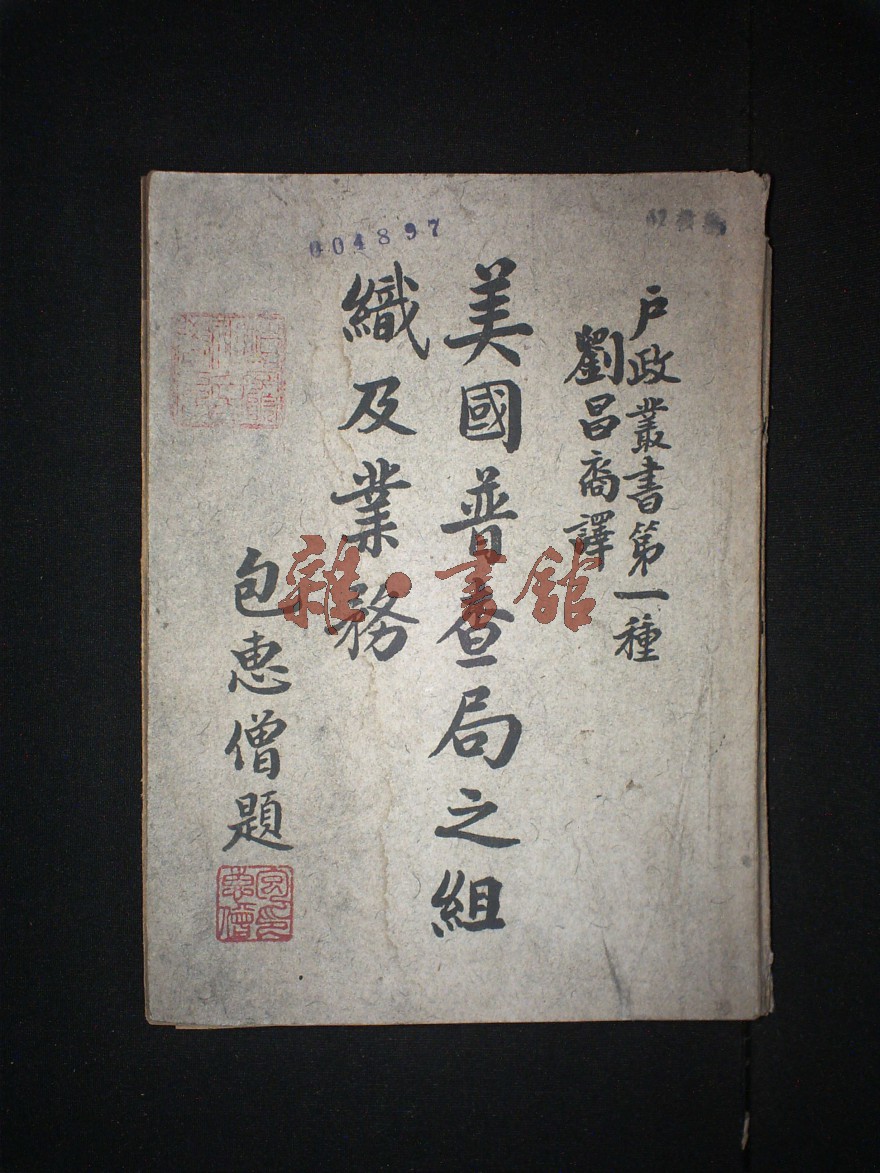 004897
户政叢書第一種
劉昌裔譯
美國普查局之組
織及業務
包惠僧題
雜·書館